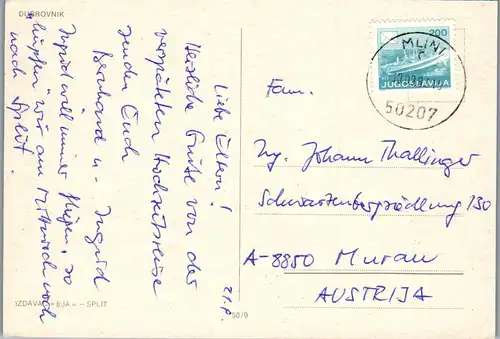 DUBROVNIK
21.9.
Liebe Eltern!
Herzliche Grüße von der
verspäteten Hochzeitsreise
senden Euch
Bernhard u. Ingrid
Ingrid will immer fliegen, so
"hüpfen" wir am Mittwoch noch
nach Split.
IZDAVA
SPLIT
50/9
200
JUGOSLAVIJA
MLINI
50207
Fam.
Ing. Johann Thallinger
Schwarzenbergsiedlung 130
A-8850 Murau
AUSTRIJA